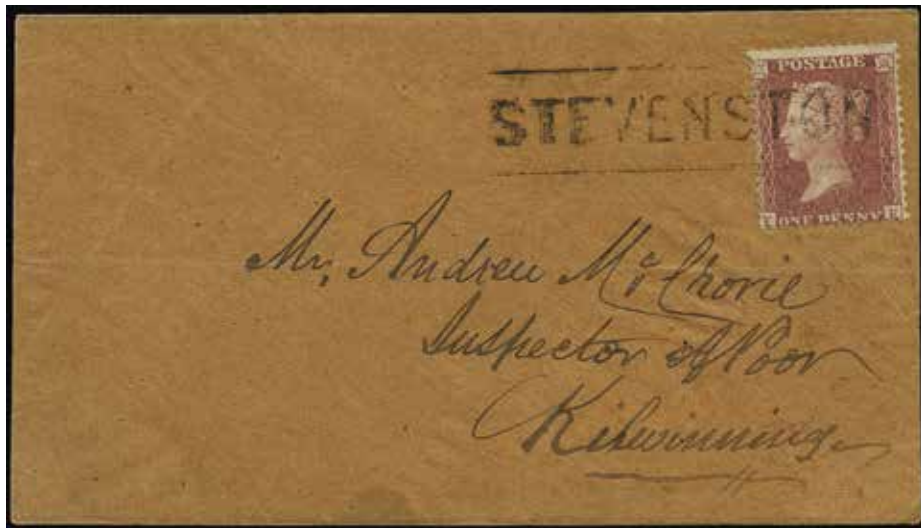 POSTAGE
STEVENSTON
ONE PENNY
Mr, Andrew McChorie
Inspector of Poor
Kilwinning